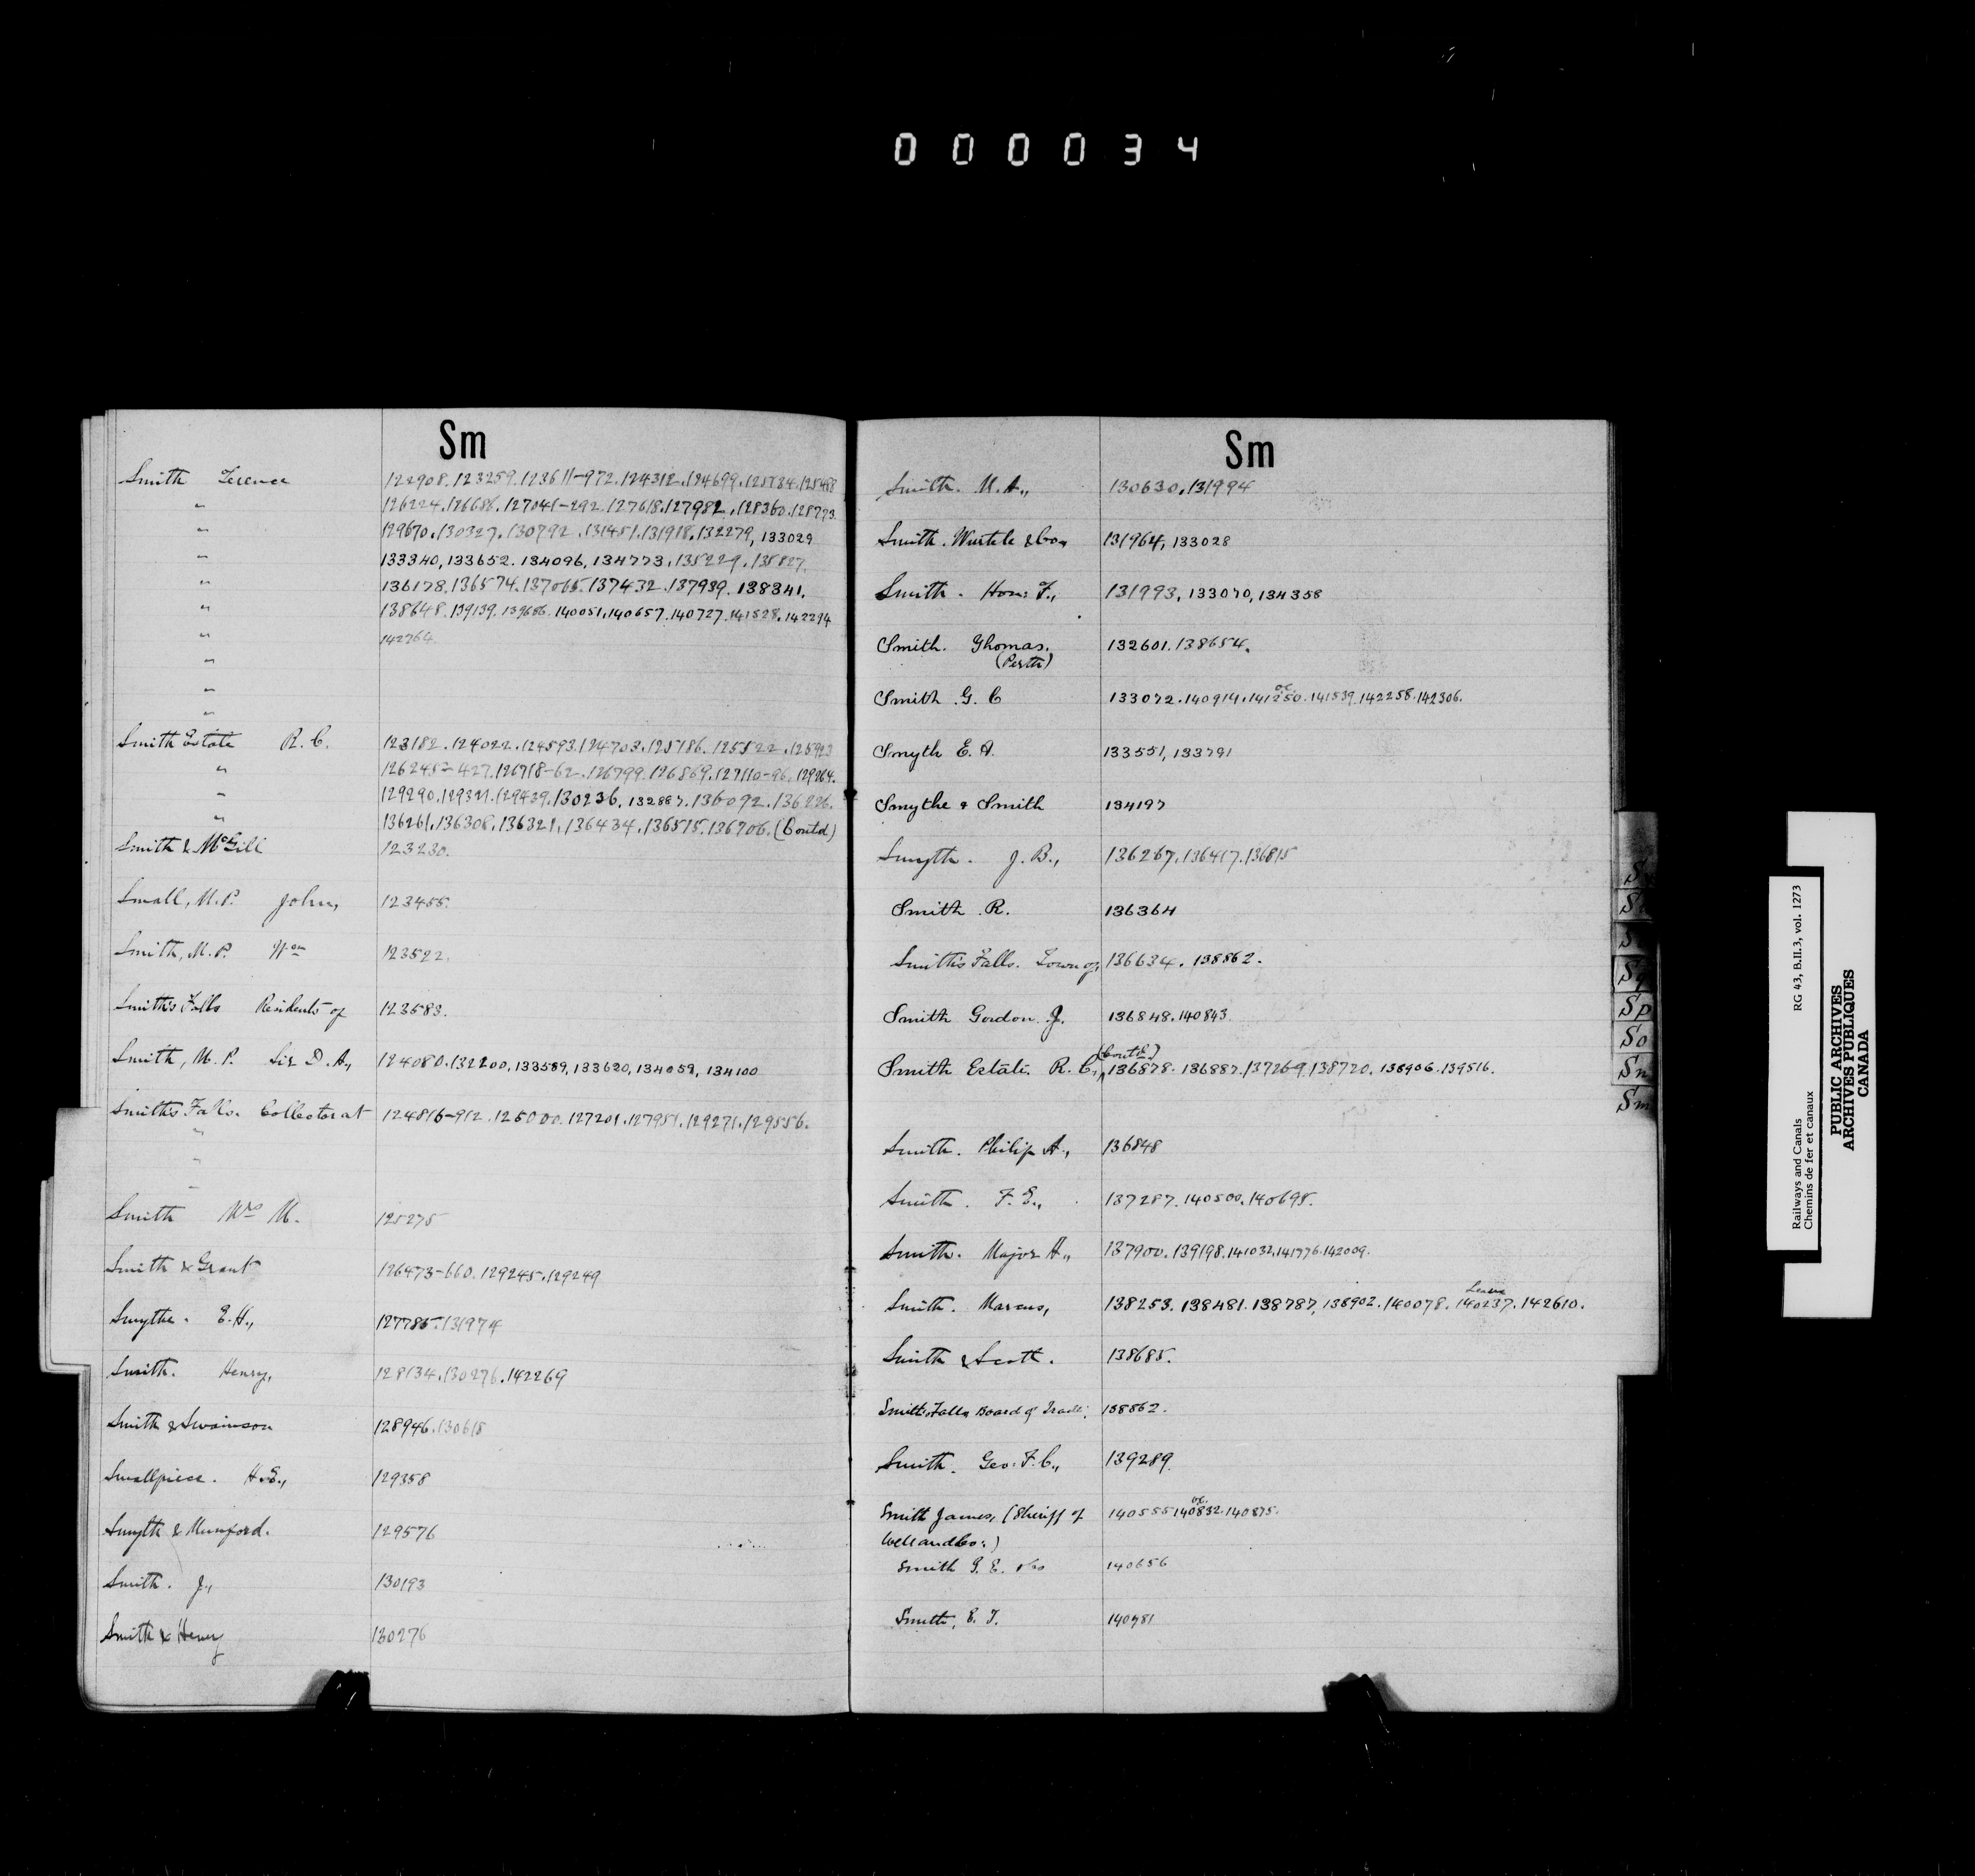 000034
Sm
Smith Terence 122908.123259.123611-972.124312.124699.125134.125488
" 126224.126686.127041-292.127618.127982.128360.128773
" 129670.130327.130792.131451.131918.132279,133029
" 133340,133652.134096,134773.135229.135827.
" 136178.136574.137065.137432.137939.138341.
" 138648.139139.139686.140051.140657.140727.141528.142294
" 142764
"
"
"
Smith Estate R. C. 123182.124022.124593.124703.125186.125522.125923
" 126245-427.126718-62.126799.126869.127110-96.129264.
" 129290.129321.129439.130236.132887.136092.136226.
" 136261.136308.136321.136434.136515.136706.(Contd)
Smith & McGill 123230.
Small, M.P. John, 123455.
Smith, M.P. Wm 123522.
Smith's Falls Residents of 123583.
Smith, M.P. Sir D.A., 124080.132200,133589,133620,134059,134100
Smith's Falls. Collector at 124816-912.125000.127201.127951.129271.129556.
"
"
"
Smith Mrs M. 125275
Smith & Grant 126473-660.129245.129249
Smythe. E.H., 127785.131974
Smith. Henry, 128134.130276.142269
Smith & Swainson 128946.130618
Smallpiece. H.E., 129358
Smyth & Mumford. 129576
Smith. J., 130193
Smith & Henry 130276
Sm
Smith. M.A., 130630.131994
Smith. Wurtele & Co. 131964,133028
Smith. Hon: F., 131993,133070,134358
Smith. Thomas. 132601.138654.
(Perth)
oc.
Smith G. C 133072.140914.141250.141539.142258.142306.
Smyth E. A. 133551,133791
Smythe & Smith 134197
Smyth. J. B., 136267.136417.136815
Smith R. 136364
Smith's Falls. Town of, 136634.138862.
Smith Gordon J. 136848.140843
(Contd)
Smith Estate. R. C., 136878.136887.137269.138720.138906.139516.
Smith. Philip A., 136848
Smith. F. E., 137287.140500.140698.
Smith. Major H., 137900.139198.141032.141776.142009.
Leave
Smith. Marcus, 138253.138481.138787,138902.140078.140237.142610.
Smith & Scott. 138685.
Smith's Falls Board of Trade, 138862.
Smith. Geo: F. C., 139289.
oc.
Smith James, (Sheriff of 140555 140832.140875.
Welland Co:)
Smith G. E. & Co 140656
Smith, E. T. 140781
Sp
So
Sn
Sm
Railways and Canals RG 43, B.II.3, vol. 1273
Chemins de fer et canaux
PUBLIC ARCHIVES
ARCHIVES PUBLIQUES
CANADA